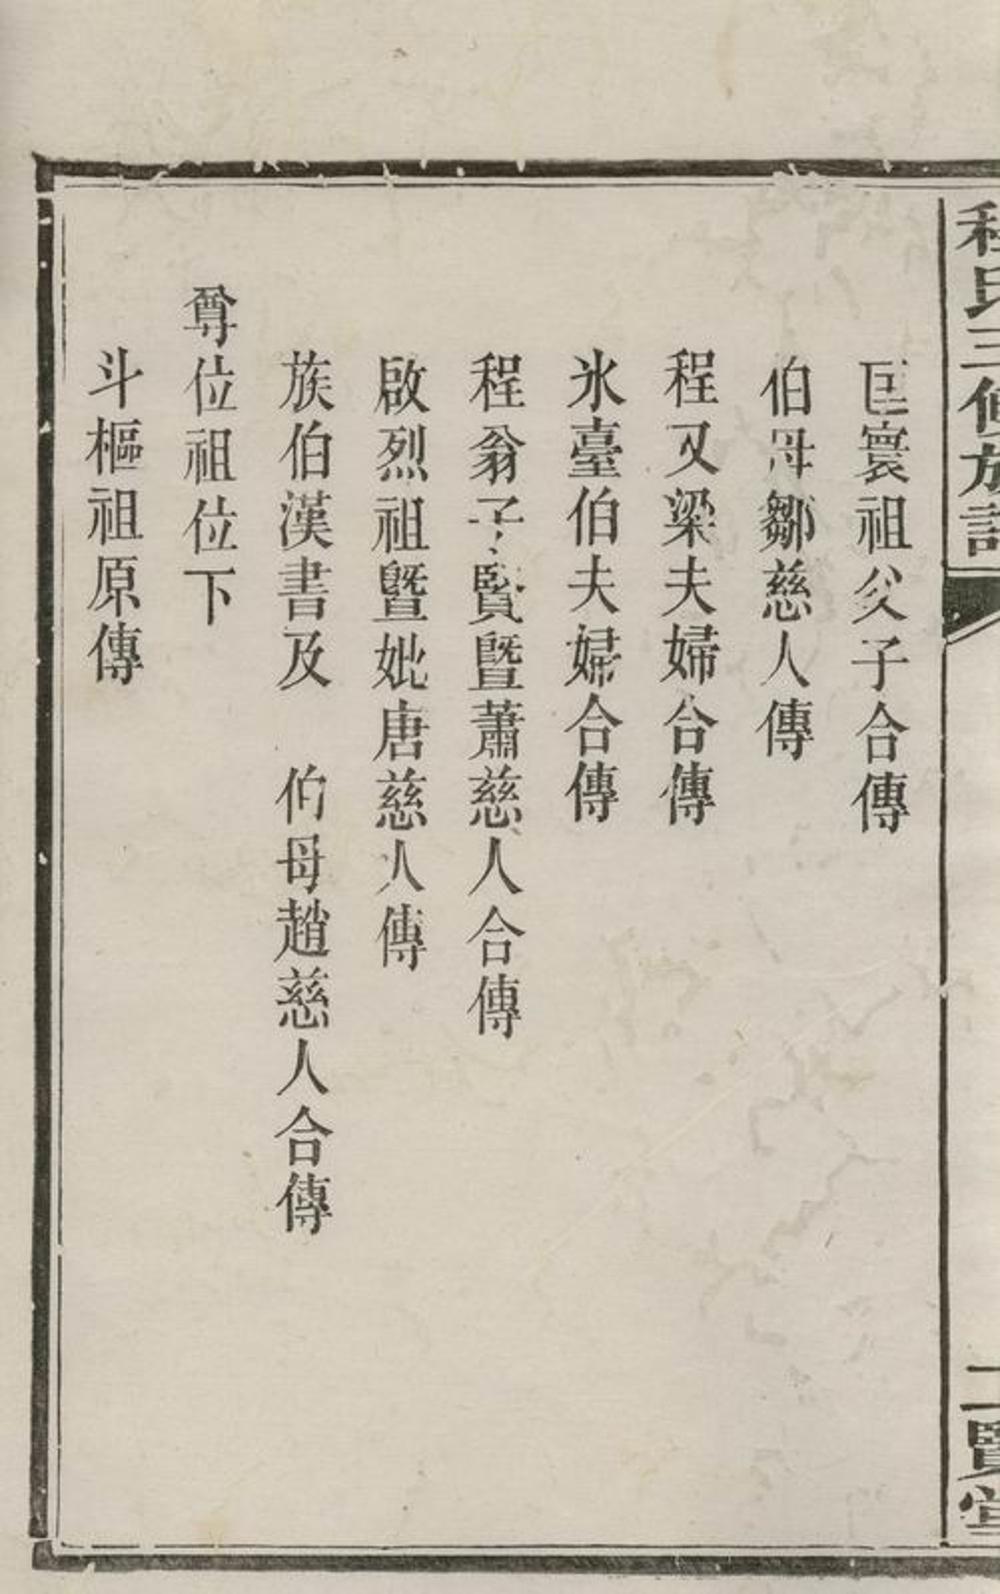 程氏三修族譜
二賢堂
匡寰祖父子合傳
伯母鄒慈人傳
程又梁夫婦合傳
氷臺伯夫婦合傳
程翁子賢暨蕭慈人合傳
啟烈祖暨妣唐慈人傳
族伯漢書及 伯母趙慈人合傳
尊位祖位下
斗樞祖原傳